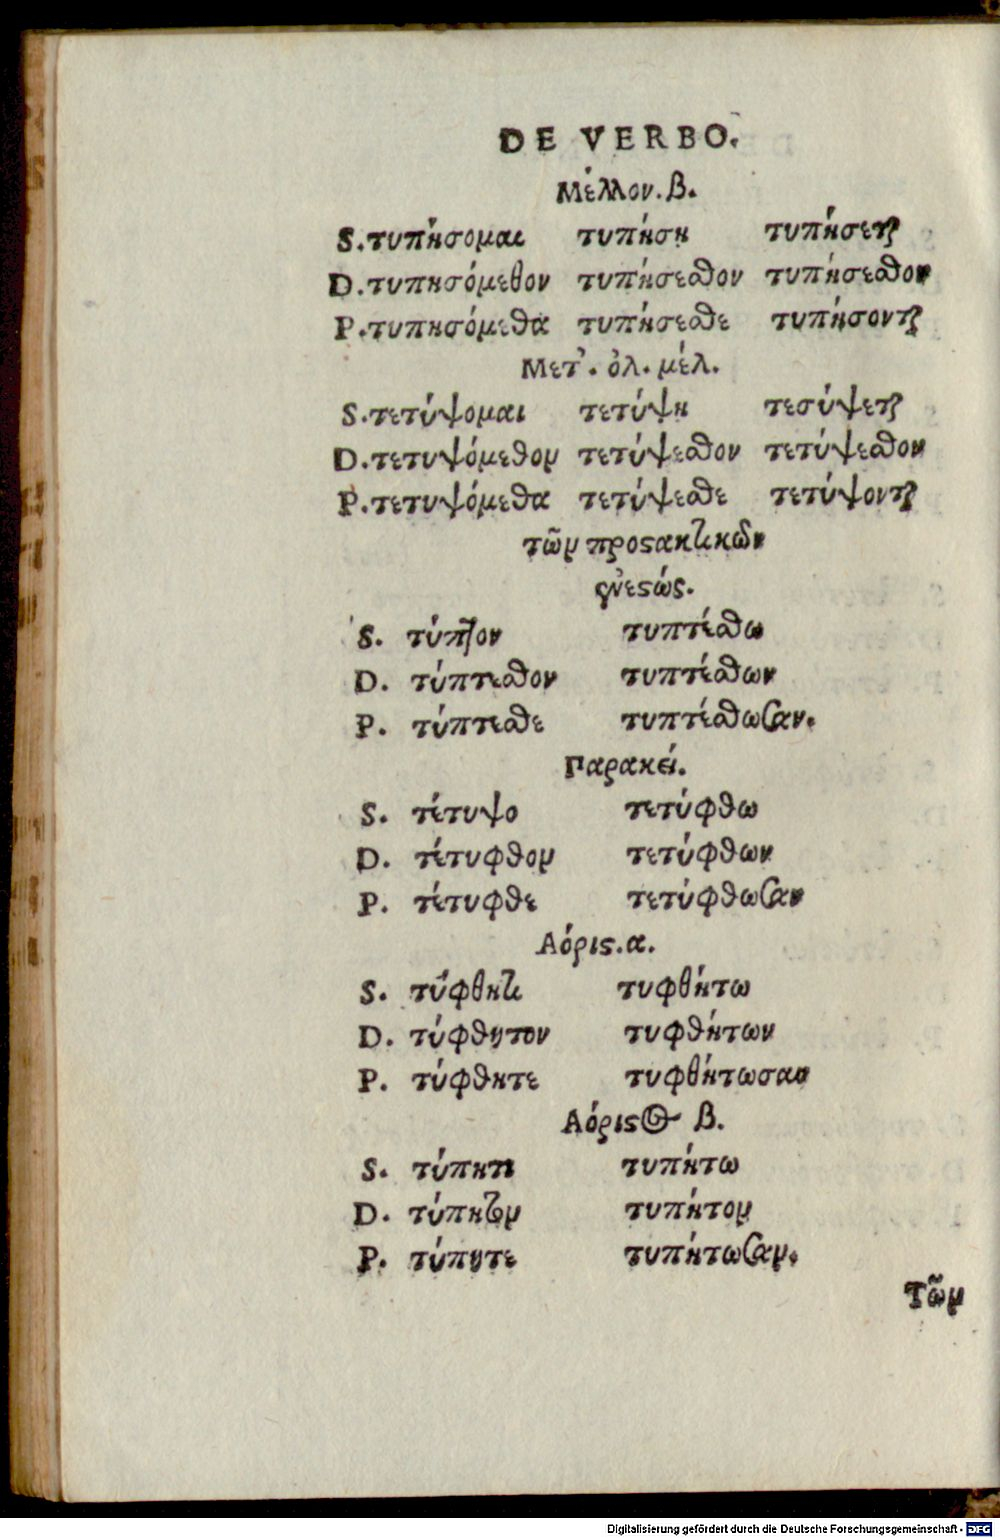 DE VERBO.
Μέλλον. β.
S. τυπήσομαι τυπήση τυπήσεται
D. τυπησόμεθον τυπήσεσθον τυπήσεσθον
P. τυπησόμεθα τυπήσεσθε τυπήσονται
Μετ'. ὀλ. μέλ.
S. τετύψομαι τετύψη τεσύψεται
D. τετυψόμεθον τετύψεσθον τετύψεσθον
P. τετυψόμεθα τετύψεσθε τετύψονται
τῶν προστακτικῶν
ἐνεστώς.
S. τύπτον τυπτέσθω
D. τύπτεσθον τυπτέσθων
P. τύπτεσθε τυπτέσθωσαν.
Παρακεί.
S. τέτυψο τετύφθω
D. τέτυφθον τετύφθων
P. τέτυφθε τετύφθωσαν
Αόριστ. α.
S. τύφθητι τυφθήτω
D. τύφθητον τυφθήτων
P. τύφθητε τυφθήτωσαν
Αόριστος β.
S. τύπητι τυπήτω
D. τύπητον τυπήτον
P. τύπητε τυπήτωσαν.
Τῶν
Digitalisierung gefördert durch die Deutsche Forschungsgemeinschaft - DFG